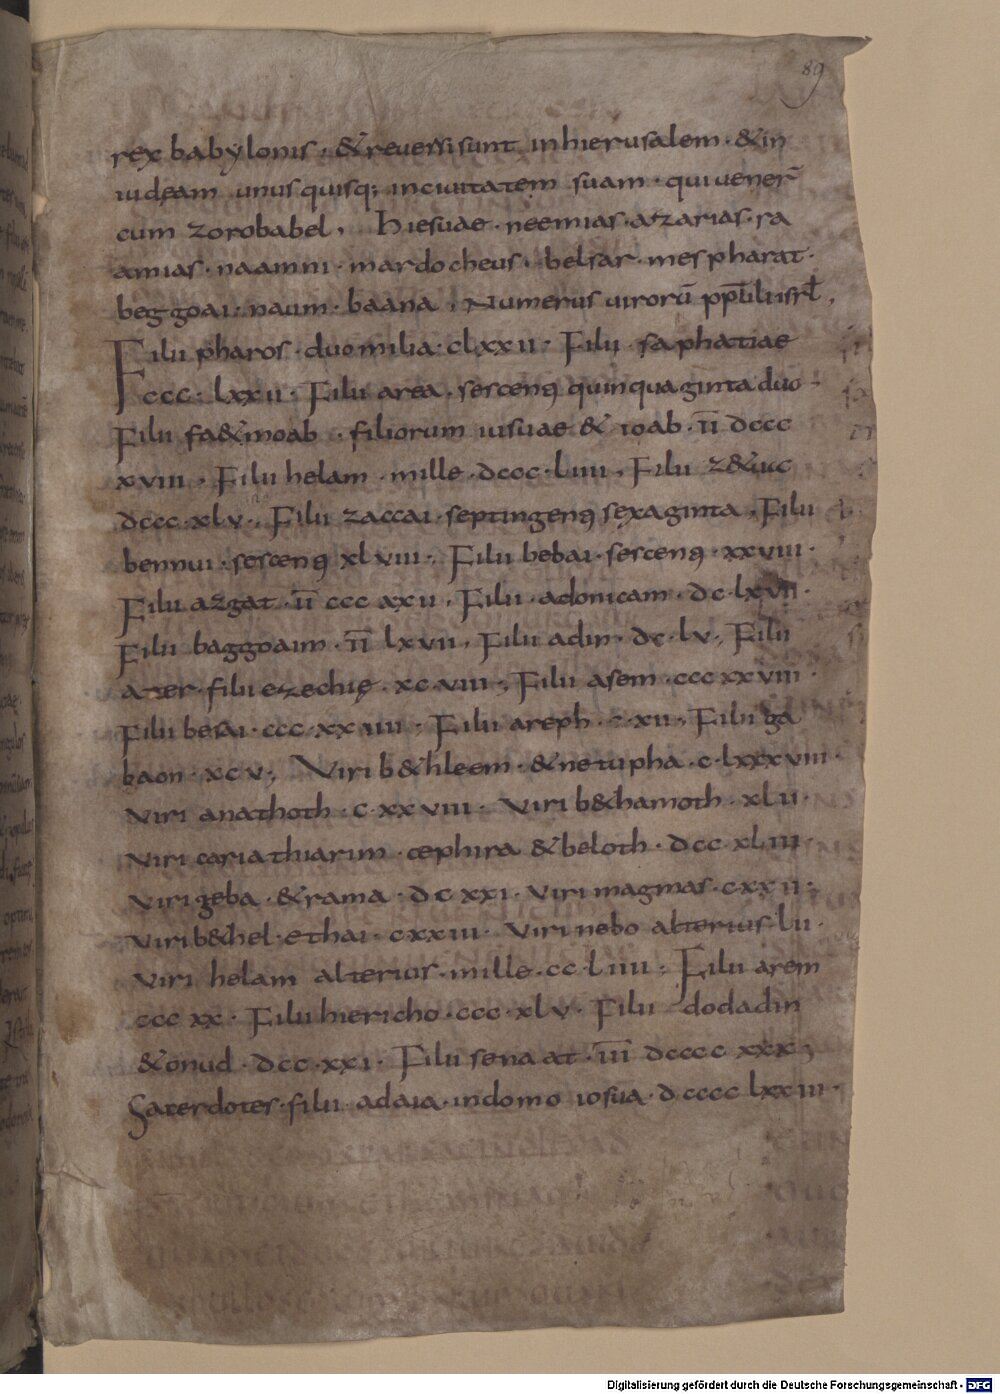 89
rex babylonis · & reuersi sunt in hierusalem · & in
iudęam unusquisq; in ciuitatem suam · qui uener̄
cum zorobabel · hiesuae · neemias · azarias · ra
amias · naamni · mardocheus · belsar · mespharat ·
beggoai · naum · baana · Numerus uirorū
Filii pharos · duo milia · clxxii · Filii saphatiae
ccc · lxxii · Filii area · sescenq quinquaginta duo
Filii fa&moab · filiorum iusuae & ioab · ii̅ dccc
xviii · Filii helam · mille · dccc · liiii · Filii
dccc · xlv · Filii zaccai · septingenq sexaginta · Filii
bennui · sescenq xlviii · Filii bebai · sescenq · xxviii ·
Filii azgat · ii̅ ccc xxii · Filii adonicam · dc · lxvii ·
Filii baggoaim · ii̅ lxvii · Filii adin · dc · lv · Filii
ater · filii ezechię · xcviii · Filii asem · cccxxviii ·
Filii besai · ccc · xxiiii · Filii areph · c · xii · Filii ga
baon · xcv · Viri b&hleem · & netupha · c · lxxxviii ·
Viri anathoth · c · xxviii · Viri b&hamoth · xlii ·
Viri cariathiarim · cephira & beloth · dcc · xliii
Viri geba · & rama · dcxxi · Viri magmas · cxxii ·
Viri b&hel · & hai · cxxiii · Viri nebo alterius · lii ·
Viri helam alterius · mille · cc · liiii · Filii arem
ccc xx · Filii hiericho · ccc · xlv · Filii dodadin
& onud · dcc · xxi · Filii senaat · iii̅ dcccc xxx ·
Saterdotes · filii adaia · in domo iosua · dcccc lxxiii ·
Digitalisierung gefördert durch die Deutsche Forschungsgemeinschaft - DFG